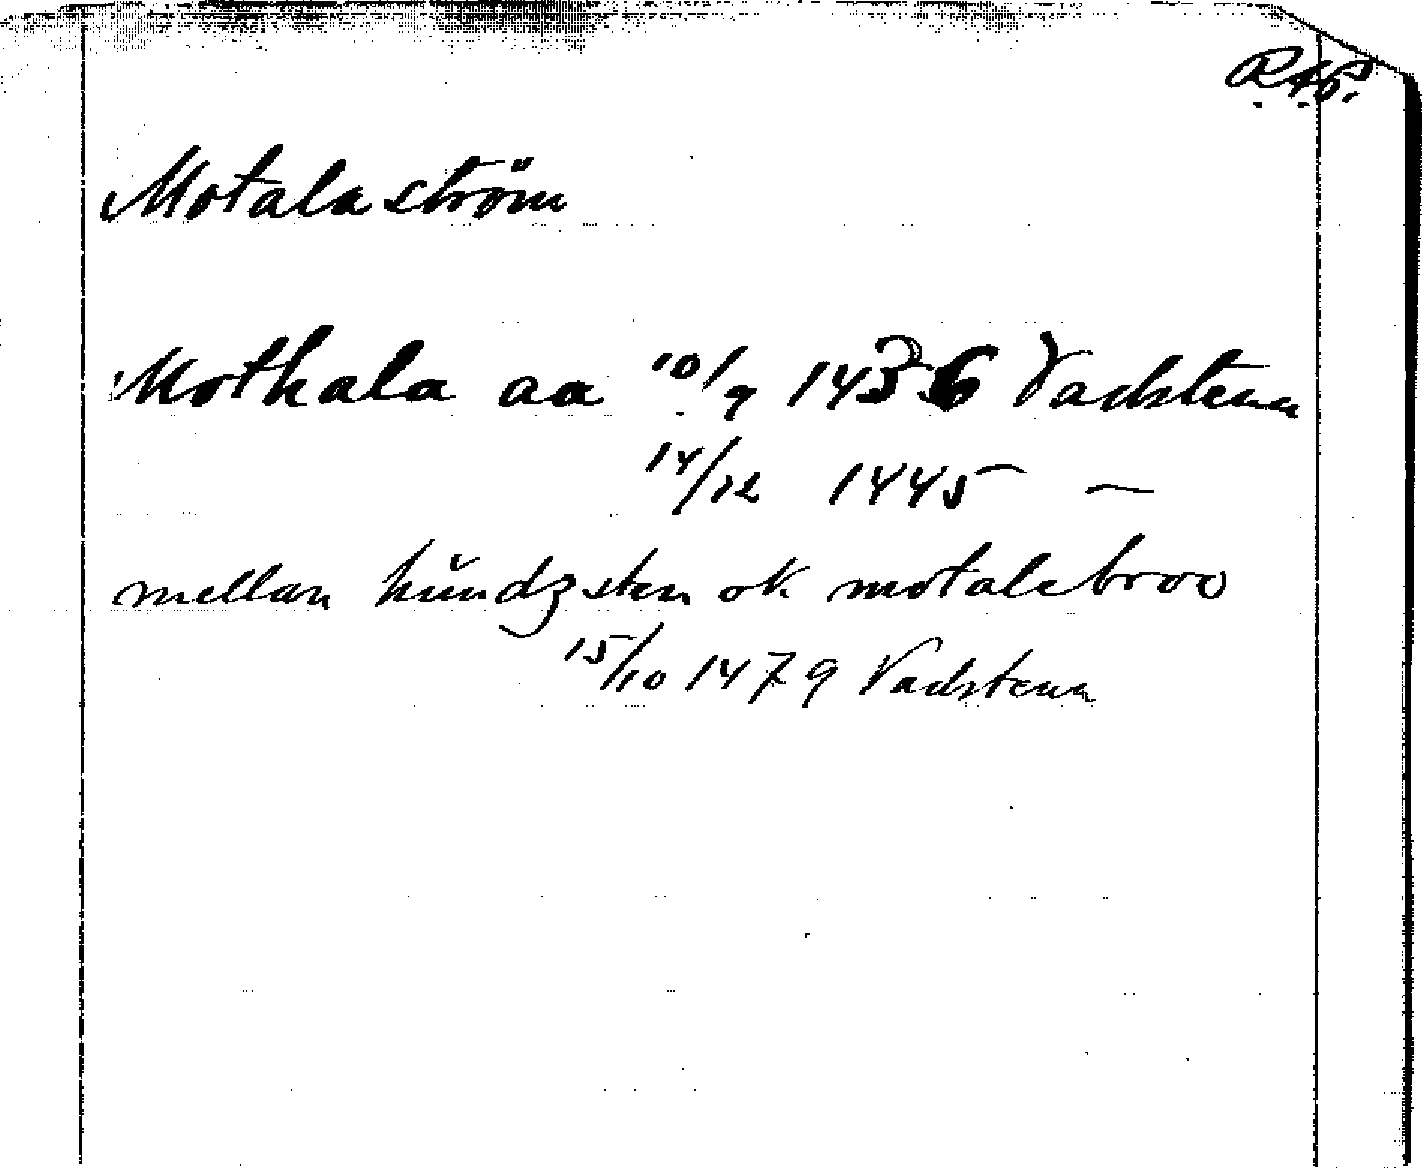 R.A.P.
Motala ström
Mothala aa 10/9 1436 Vadstena
14/12 1445 —
mellan hŭndzsten ok motalebroo
15/10 1479 Vadstena